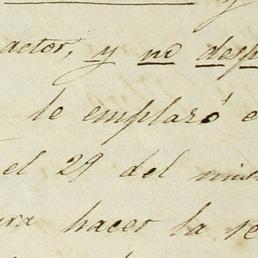 actor, y no desp
le emplazó e
el 29 del mis
ara hacer la re